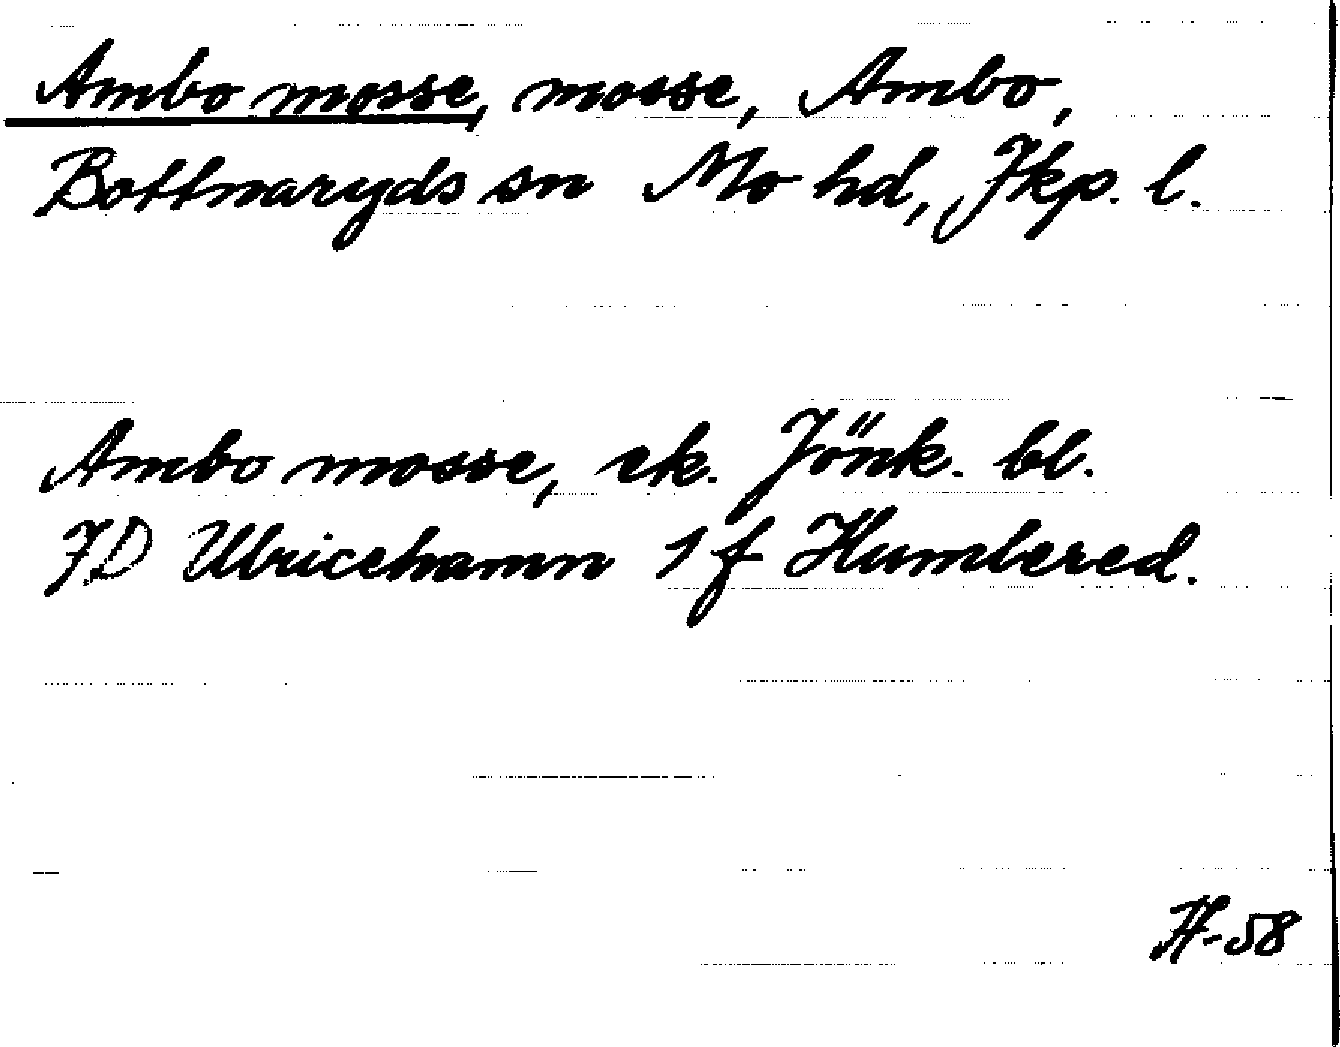 Ambo mosse, mosse, Ambo,
Bottnaryds sn Mo hd, Jkp. l.
Ambo mosse, ek. Jönk. bl.
JD Ulricehamn 1 f Humlered.
H-58